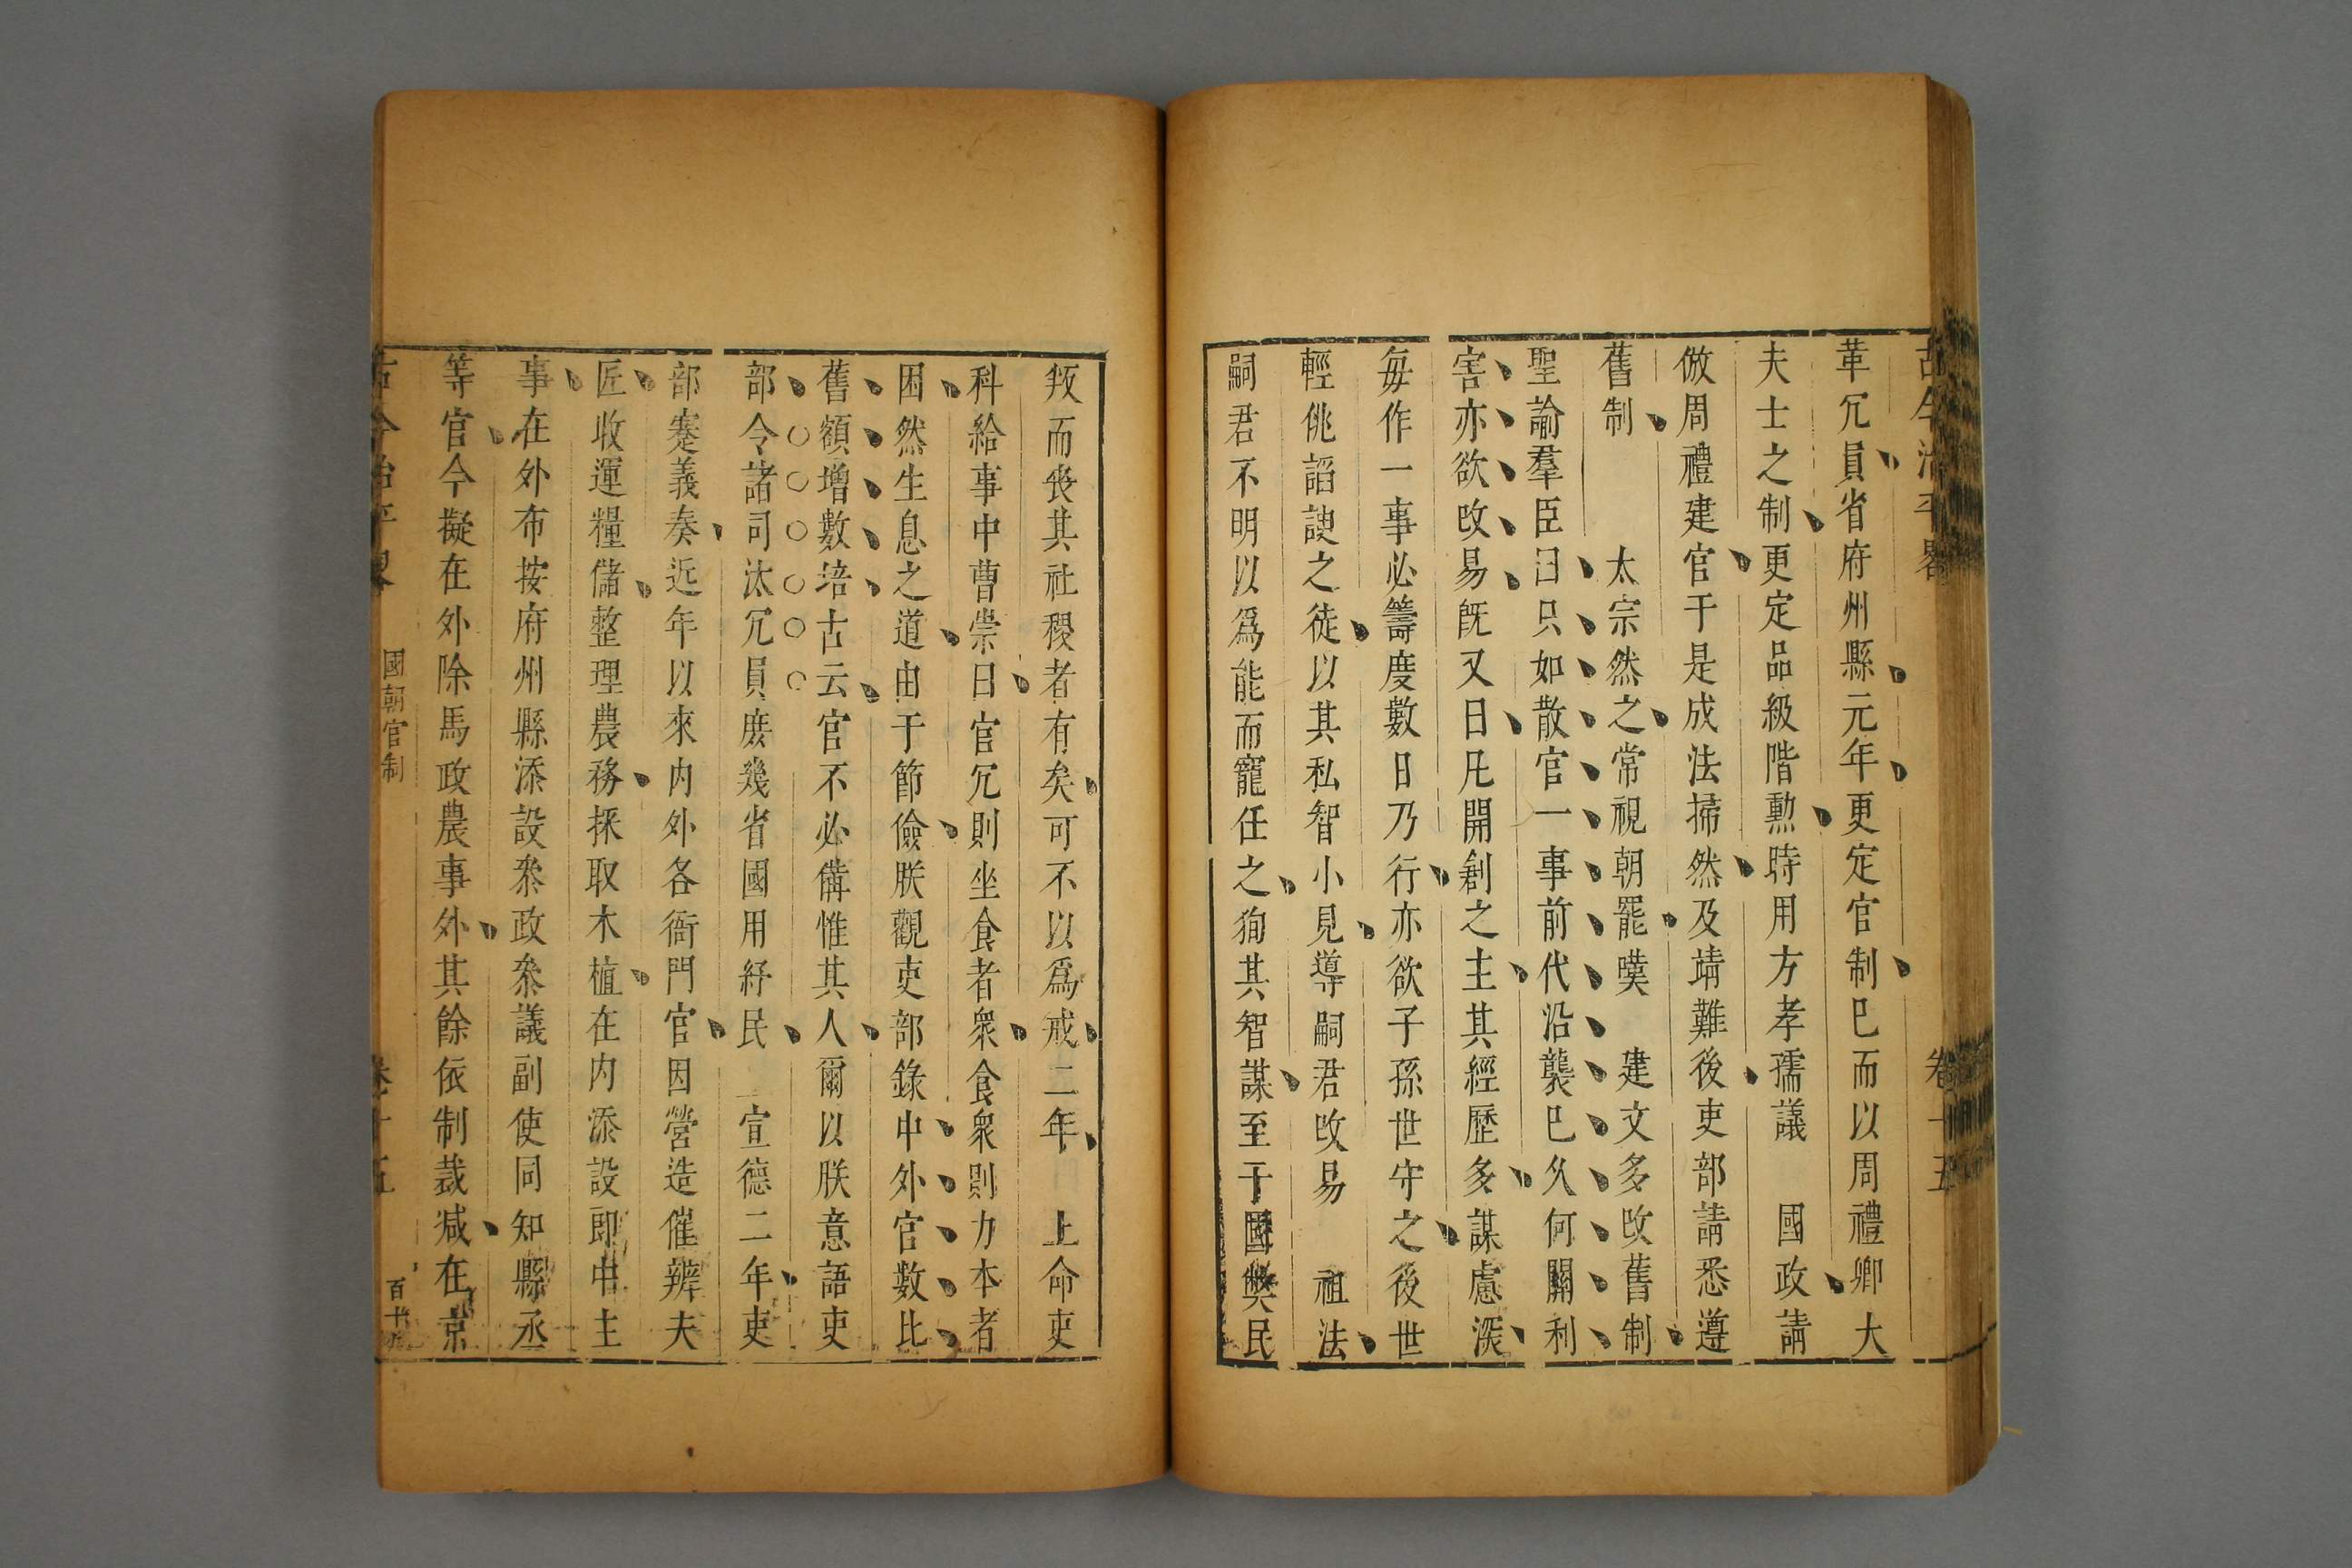 古今治平畧
卷十五
革冗員省府州縣元年更定官制巳而以周禮卿大
夫士之制更定品級階勲時用方孝孺議 國政請
倣周禮建官于是成法掃然及靖難後吏部請悉遵
舊制 太宗然之常視朝罷嘆 建文多改舊制
聖諭羣臣曰只如散官一事前代沿襲巳久何關利
害亦欲改易旣又曰凡開創之主其經歷多謀慮深
每作一事必籌度數日乃行亦欲子孫世守之後世
輕佻諂諛之徒以其私智小見導嗣君改易 祖法
嗣君不明以爲能而寵任之狥其智謀至于國獘民
叛而喪其社稷者有矣可不以爲戒二年 上命吏
科給事中曹崇曰官冗則坐食者衆食衆則力本者
困然生息之道由于節儉朕觀吏部錄中外官數比
舊額增數培古云官不必備惟其人爾以朕意語吏
部令諸司汰冗員庶幾省國用紓民 宣德二年吏
部蹇義奏近年以來内外各衙門官因營造催辨夫
匠收運糧儲整理農務採取木植在内添設郎中主
事在外布按府州縣添設叅政叅議副使同知縣丞
等官今擬在外除馬政農事外其餘依制裁减在京
古今治平畧
國朝官制
卷十五